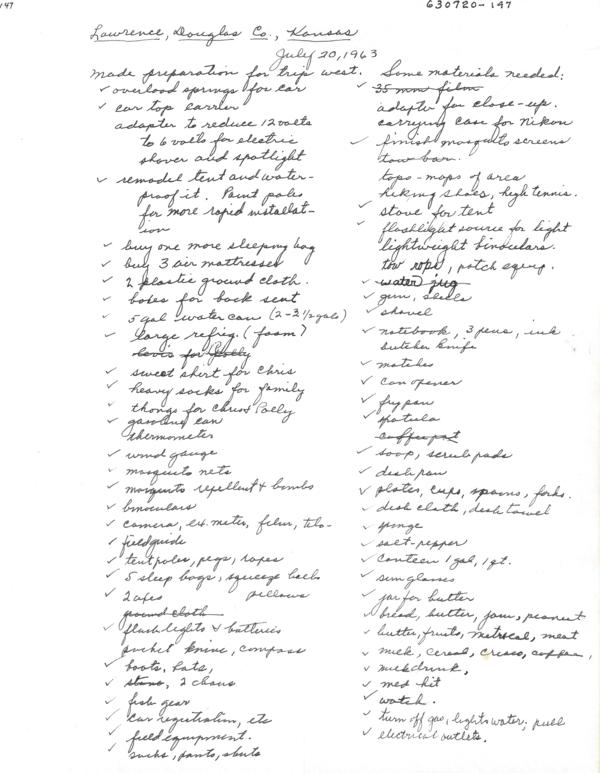 147
630720-147
Lawrence, Douglas Co., Kansas
July 20, 1963
Made preparation for trip west.
✓ overload springs for car
✓ car top carrier
adapter to reduce 12 volts
to 6 volts for electric
shaver and spotlight
✓ remodel tent and water-
proof it. Paint poles
for more rapid installat-
ion
✓ buy one more sleeping bag
✓ buy 3 air mattresses
✓ 2 plastic ground cloth.
✓ boxes for back seat
✓ 5 gal water can (2-2 1/2 gals)
✓ large refrig. (foam)
levis for Polly
✓ sweat shirt for Chris
✓ heavy socks for family
✓ thongs for Chris & Polly
✓ gasoline can
thermometer
✓ wind gauge
✓ mosquito nets
✓ mosquito repellent & bombs
✓ binoculars
✓ camera, ex. meter, film, tele-
✓ fieldguide
✓ tent poles, pegs, ropes
✓ 5 sleep bags, squeeze
✓ 2 axes pillows
ground cloth
✓ flash lights & batteries
pocket knive, compass
✓ boots, hats,
✓ stove, 2 chairs
✓ fish gear
✓ car registration, etc
✓ field equipment.
✓ socks, pants, shirts
Some materials needed:
✓ 35 mm film
adapter for close-up.
carrying case for Nikon
✓ finish mosquito screens
tow bar.
topo-maps of area
hiking shoes, high tennis.
✓ stove for tent
✓ flashlight source for light
lightweight binoculars.
tow rope, patch equip.
✓ water jug
✓ gun, shells
✓ shovel
✓ notebook, 3 pens, ink
butcher knife
✓ matches
✓ can opener
✓ frypan
✓ spatula
coffeepot
✓ soap, scrub pads
✓ dishpan
✓ plates, cups, spoons, forks.
✓ dish cloth, dish towel
✓ sponge
✓ salt-pepper
✓ canteen 1 gal, 1 qt.
✓ sun glasses
✓ jar for butter
✓ bread, butter, jam, peanut
✓ butter, fruits, metrecal, meat
✓ milk, cereal, crisco, coffee,
✓ milk drink,
✓ med kit
✓ watch.
✓ turn off gas, lights water; pull
✓ electrical outlets.